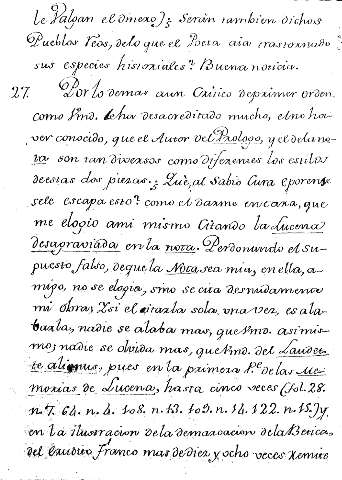 le Valgan el anexo); Serán tambien dichos
Pueblos Reos, de lo que el Poeta aia trastornado
sus especies historiales? Buena noticia.
27. Por lo demas a un Critico de primer orden
como Vmd. le ha desacreditado mucho, el no ha-
ver conocido, que el Autor del Prologo, y el de la no-
ta son tan diversos como diferentes los estilos
de estas dos piezas. Què, al Sabio Cura eporense
se le escapa esto? como el darme en cara, que
me elogio a mi mismo citando la Lucena
desagraviada en la nota. Perdonando el su-
puesto falso, de que la Nota sea mia, en ella, a-
migo, no se elogia, sino se cita desnudamente
mi obra; Y si el citarla sola una vez, es ala-
barla, nadie se alaba mas, que Vmd. asimis-
mo; nadie se olvida mas, que Vmd. del Lauden-
te alienus, pues en la primera Pte. de las Me-
morias de Lucena, hasta cinco veces (fol. 28.
n. 7. 64. n. 4. 108. n. 13. 109. n. 14. 122. n. 15.) y
en la ilustracion de la demarcacion de la Betica,
del erudito Franco mas de diez y ocho veces remite